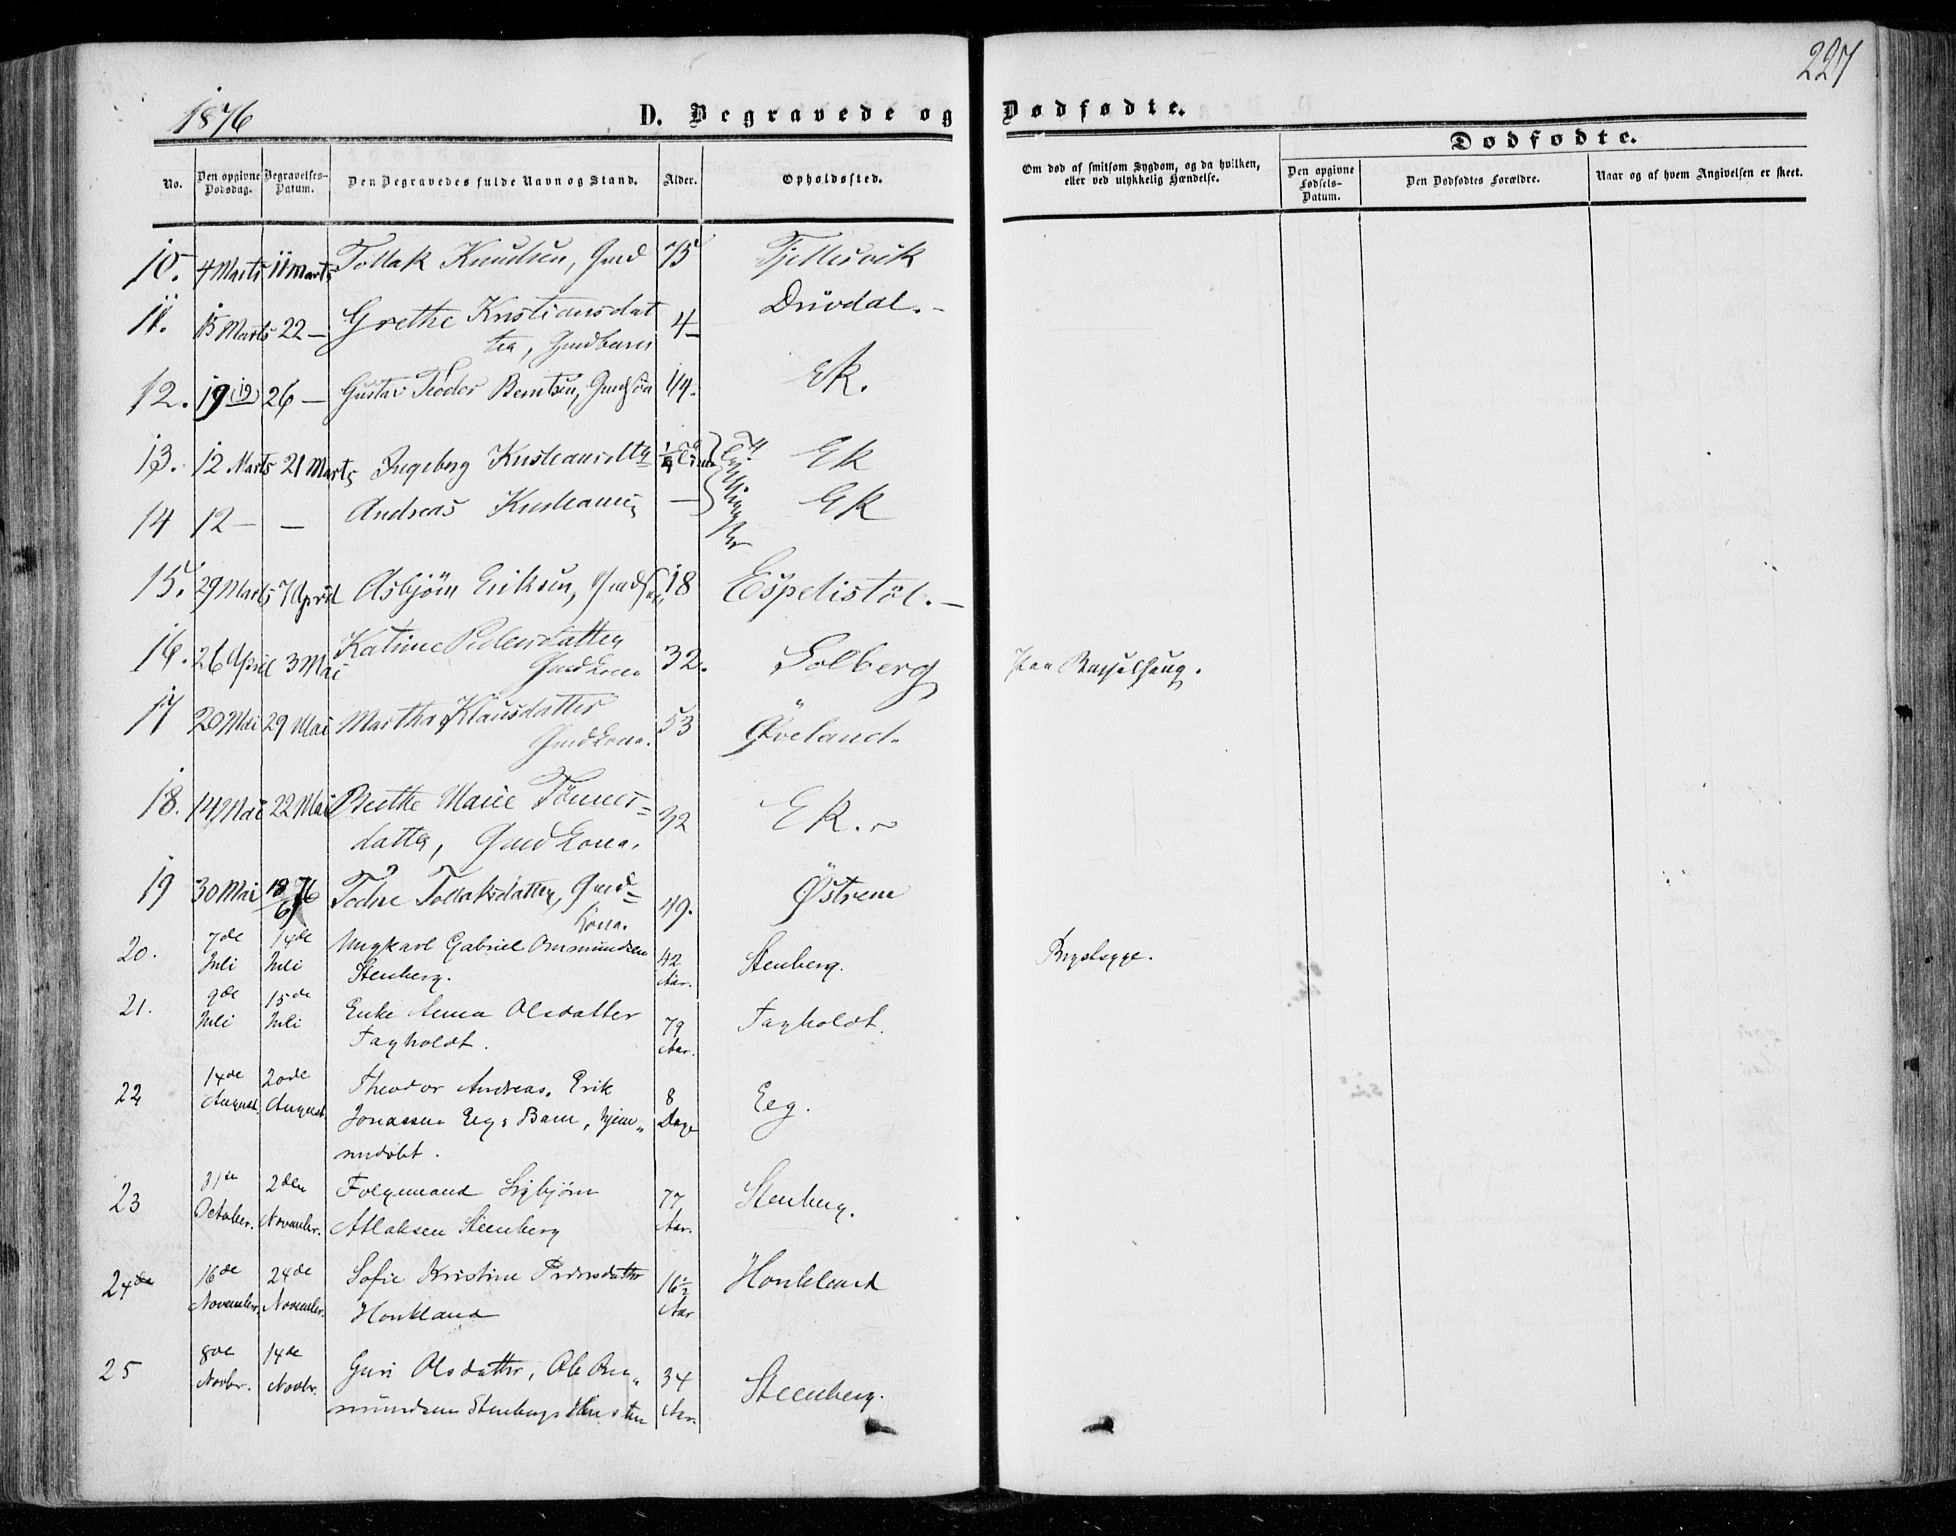 227
1876
D. Begravede og Dødfødte.
Dødfødte.
No.
Den opgivne Dødsdag.
Begravelses-Datum.
Den Begravedes fulde Navn og Stand.
Alder.
Opholdssted.
Om død af smitsom Sygdom, og da hvilken, eller ved ulykkelig Hændelse.
Den opgivne Fødsels-Datum.
Den Dødfødtes Forældre.
Naar og af hvem Angivelsen er skeet.
10. 4 Marts 11 Marts Tollak Knudsen, Gmd 75 Tjellesvik
11. 15 Marts 22 — Grethe Kristiansdat 4 — Drivdal. —
ter, Gmdbarn
12. 19 (19) 26 — Gustav Teodor Berntsen, Gmdsøn 1/4. Ek.
13. 12 Marts 21 Marts Ingeborg Kristiansdtr Ek
Tvillinger
14 12 — — Andreas Kristiansen — Ek
15. 29 Marts 7 April Asbjörn Eriksen, Gmdsön 18 Espelistöl. —
16. 26 April 3 Mai Katrine Pedersdatter 32. Solberg Paa Barselseng.
Gmdkona
17 20 Mai 29 Mai Martha Klausdatter 53 Øveland.
Gmdkona.
18. 14 Mai 22 Mai Berthe Marie Tönnes- 32 Ek.
datter, Gmdkona.
19 30 Mai 18/6 76 Todne Tollaksdatter, Gmd- 49. Østrem
kona.
20. 7de Juli 14de Juli Ungkarl Gabriel Ommundsen 42 Aar. Stenberg. Brystsyge.
Stenberg.
21. 9de Juli 15de Juli Enke Anna Olsdatter 79 Aar. Fagholdt.
Fagholdt.
22 14de August. 20de August Theodor Andreas. Erik 8 Dage Eeg.
Jonassen Eeg: Barn, hjem„
medøbt.
23 31te October. 2den Novembr. Folgemand Sigbjørn 77 Aar. Stenberg.
Atlaksen Steenberg
24de 16de Novembr. 24de Novembr. Sofie Kristine Pedersdatter 16½ Aar Honkland
Honkland
25 8de Novbr. 14de Novbr. Guri Olsdatter, Ole Om„ 34 Aar. Steenberg.
mundsen Stenbergs Hustru